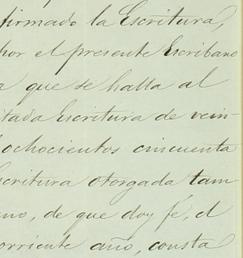 firmado la Escritura,
por el presente Escribano
a que se halla al
itada Escritura de vein-
ochocientos cincuenta
scritura otorgada tam-
no, de que doy fé, el
orriente año, consta